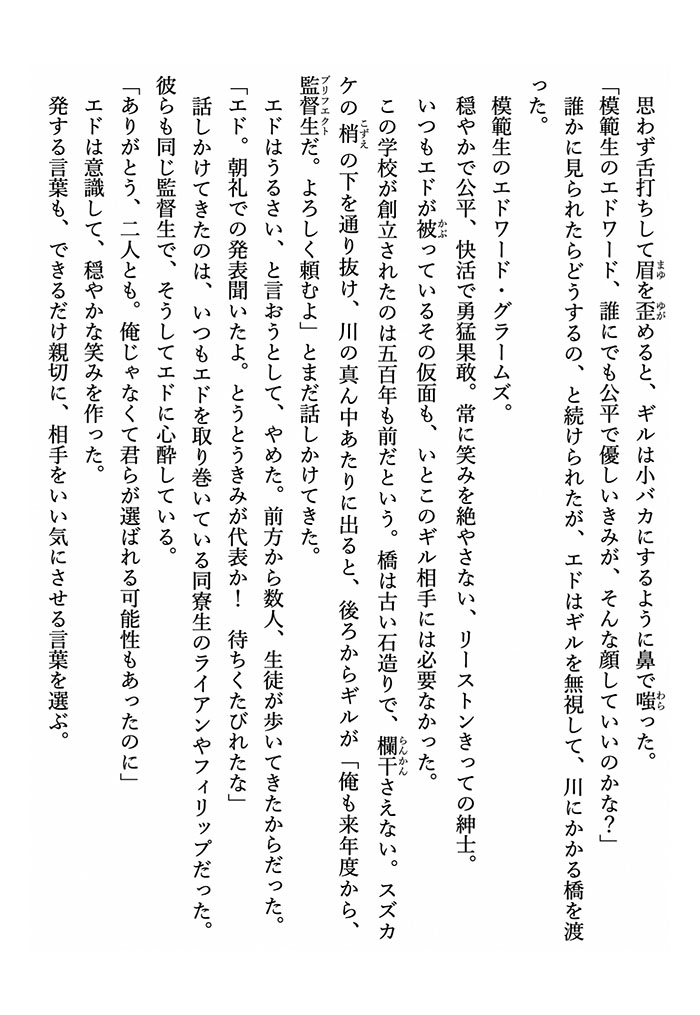 思わず舌打ちして眉を歪めると、ギルは小バカにするように鼻で嗤った。
「模範生のエドワード、誰にでも公平で優しいきみが、そんな顔していいのかな？」
誰かに見られたらどうするの、と続けられたが、エドはギルを無視して、川にかかる橋を渡
った。
模範生のエドワード・グラームズ。
穏やかで公平、快活で勇猛果敢。常に笑みを絶やさない、リーストンきっての紳士。
いつもエドが被っているその仮面も、いとこのギル相手には必要なかった。
この学校が創立されたのは五百年も前だという。橋は古い石造りで、欄干さえない。スズカ
ケの梢の下を通り抜け、川の真ん中あたりに出ると、後ろからギルが「俺も来年度から、
監督生だ。よろしく頼むよ」とまだ話しかけてきた。
エドはうるさい、と言おうとして、やめた。前方から数人、生徒が歩いてきたからだった。
「エド。朝礼での発表聞いたよ。とうとうきみが代表か！　待ちくたびれたな」
話しかけてきたのは、いつもエドを取り巻いている同寮生のライアンやフィリップだった。
彼らも同じ監督生で、そうしてエドに心酔している。
「ありがとう、二人とも。俺じゃなくて君らが選ばれる可能性もあったのに」
エドは意識して、穏やかな笑みを作った。
発する言葉も、できるだけ親切に、相手をいい気にさせる言葉を選ぶ。